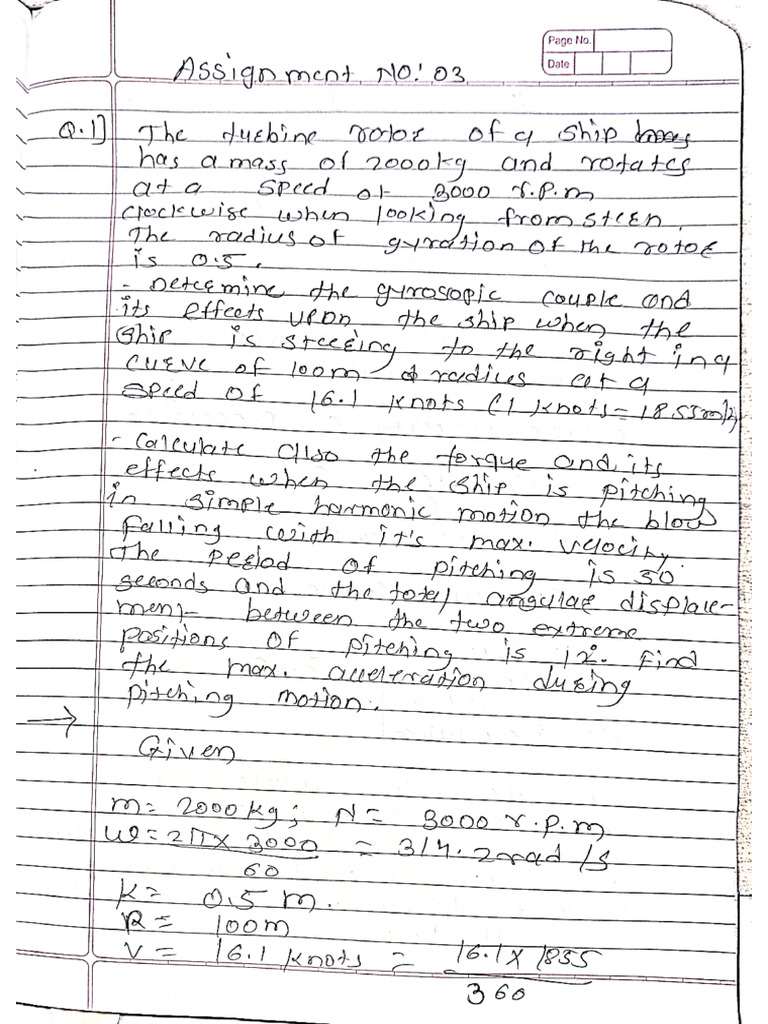 Page No.
Date
Assignment NO: 03
Q.1] The turbine rotor of a ship
has a mass of 2000kg and rotates
at a speed of 3000 r.p.m
clockwise when looking from stern.
The radius of gyration of the rotor
is 0.5.
- Determine the gyrosopic couple and
its effects upon the ship when the
ship is steering to the right in a
curve of 100m radius at a
speed of 16.1 knots (1 knots = 18.55m/
- Calculate also the torque and its
effects when the ship is pitching
in simple harmonic motion the blow
falling with it's max. velocity.
The period of pitching is 50
seconds and the total angular displace-
ment between the two extreme
positions of pitching is 12°. Find
the max. acceleration during
pitching motion.
→
Given
m = 2000kg; N = 3000 r.p.m
ω = 2π x 3000 = 314.2 rad/s
60
K = 0.5 m.
R = 100m
V = 16.1 knots = 16.1 x 1855
360